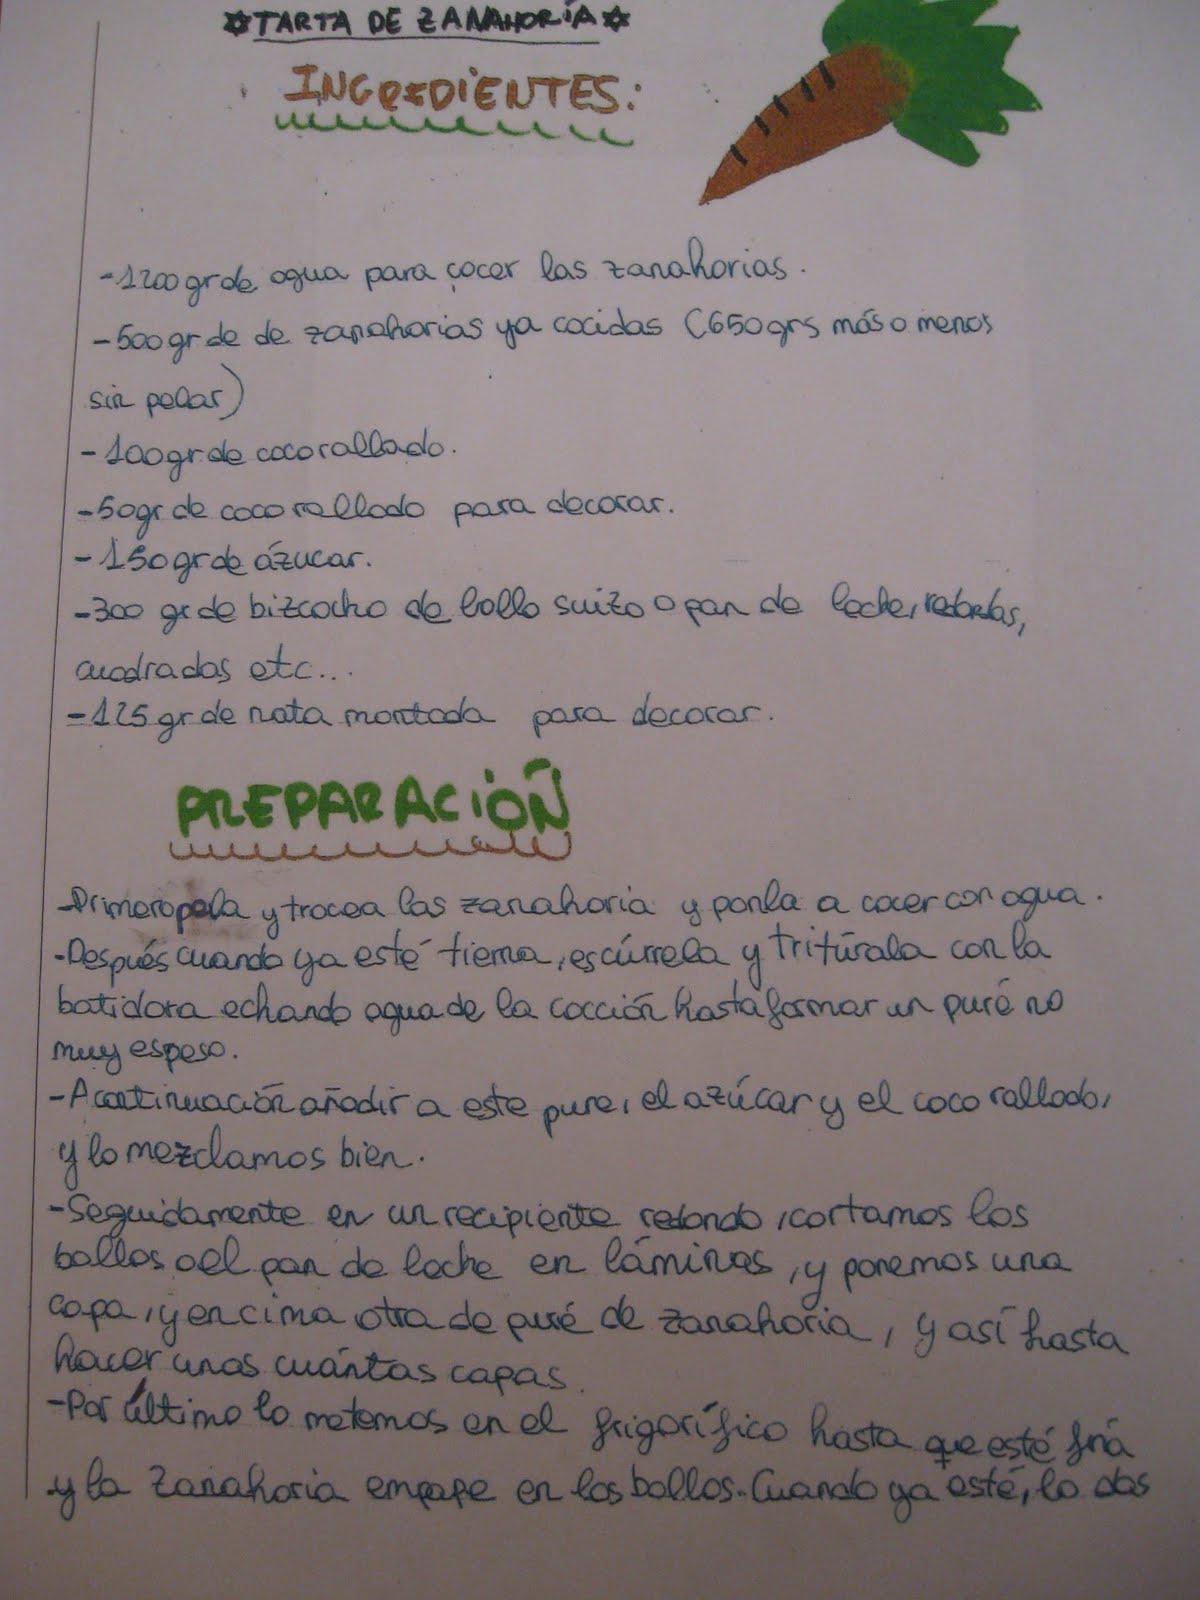 ☆TARTA DE ZANAHORIA☆
INGREDIENTES:
-1200gr de agua para cocer las zanahorias.
-500gr de de zanahorias ya cocidas (650grs más o menos
sin pelar)
-100gr de coco rallado.
-50gr de coco rallado para decorar.
-150gr de ázucar.
-300 gr de bizcocho de bollo suizo o pan de leche, redondas,
cuadradas etc...
-125 gr de nata montada para decorar.
PREPARACIÓN
-Primero pela y trocea las zanahoria y ponla a cocer con agua.
-Después cuando ya esté tierna, escúrrela y tritúrala con la
batidora echando agua de la cocción hasta formar un puré no
muy espeso.
-A continuación añadir a este pure, el azúcar y el coco rallado,
y lo mezclamos bien.
-Seguidamente en un recipiente redondo, cortamos los
bollos o el pan de leche en láminas, y ponemos una
capa, y encima otra de puré de zanahoria, y así hasta
hacer unas cuántas capas.
-Por último lo metemos en el frigorífico hasta que esté fría
y la zanahoria empape en los bollos. Cuando ya esté, lo das